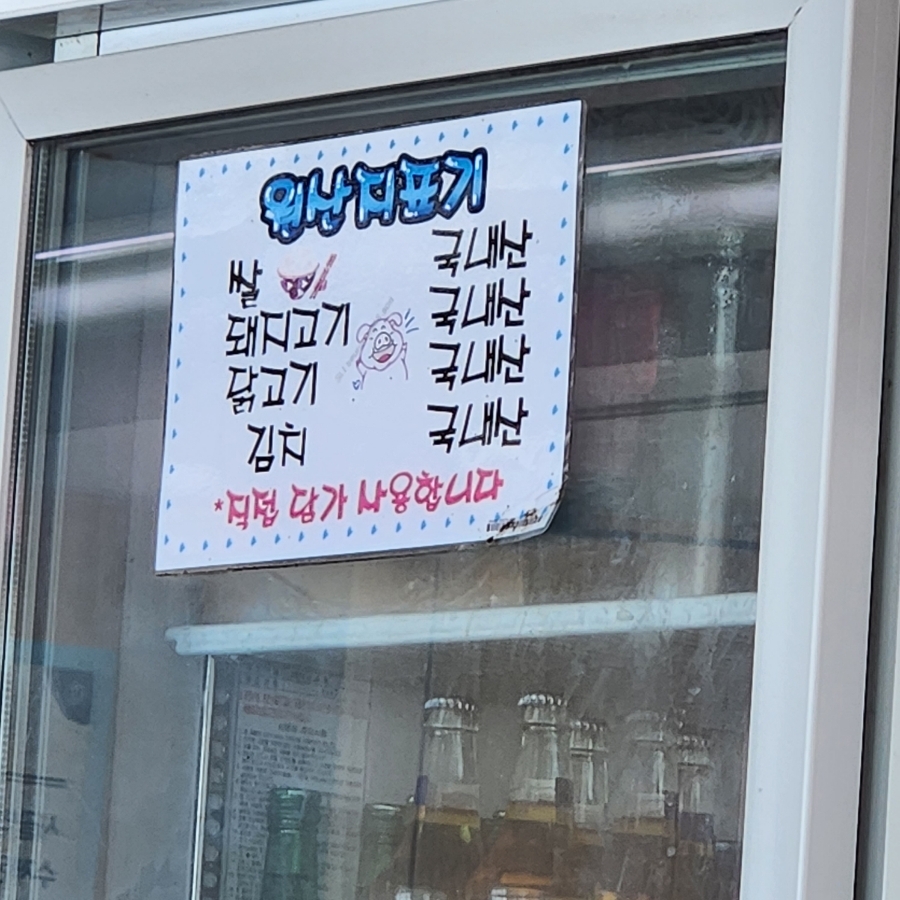 원산지표기
쌀 국내산
돼지고기 국내산
닭고기 국내산
김치 국내산
*직접 담가 사용합니다